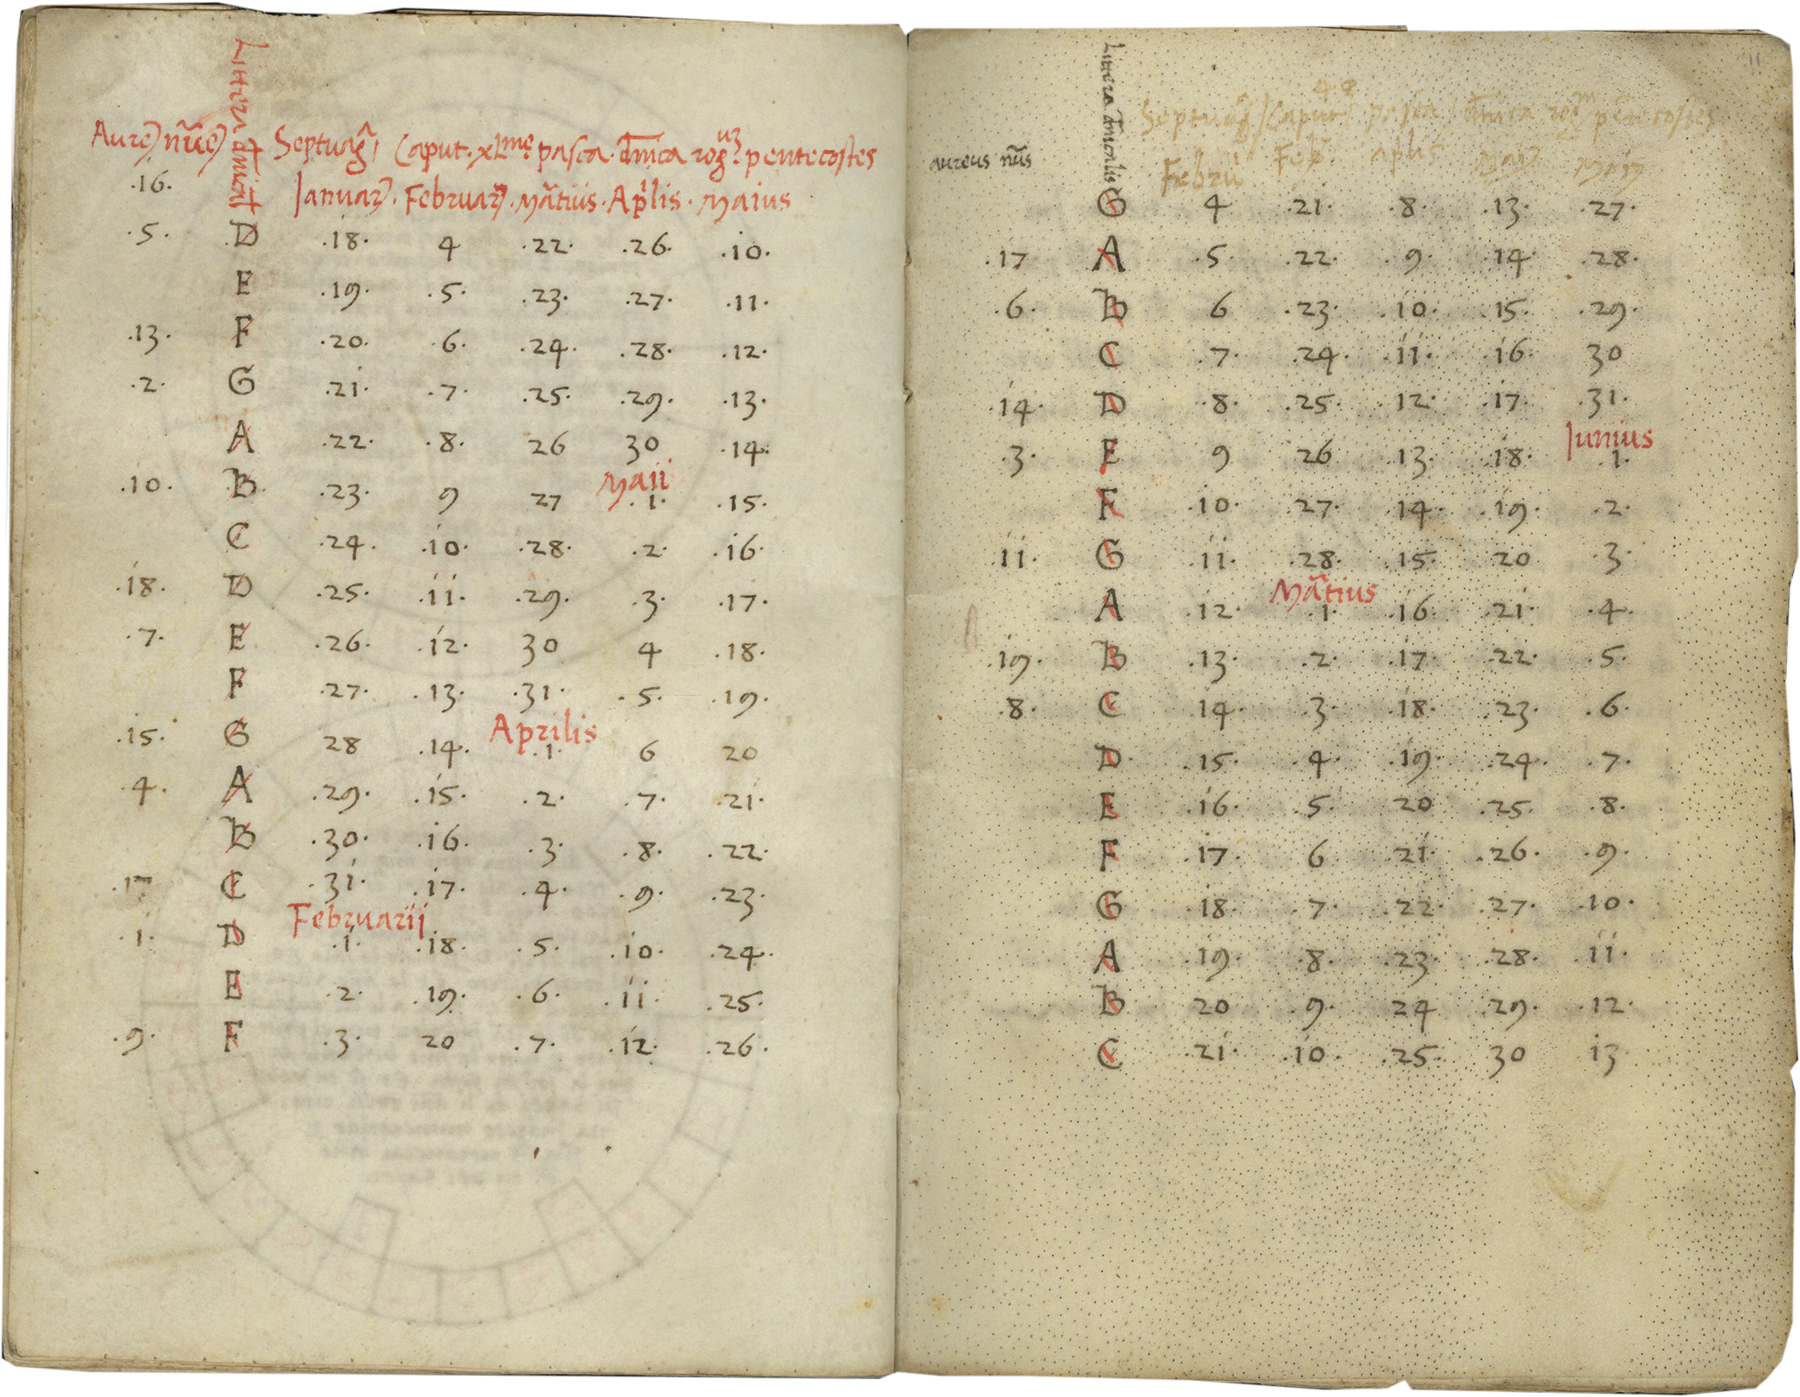 Littera dnica͞l
Aure9 nu͞e9 Septuag͞ Caput · xLme pasca · dn͞ica rog · uʒ pentecostes
·16· Januar · Februar · Ma͞tius · Ap̍lis · Maius
·5· D ·18· 4 ·22· ·26· ·10·
E ·19· ·5· ·23· ·27· ·11·
·13· F ·20· ·6· ·24· ·28· ·12·
·2· G ·21· ·7· ·25· ·29· ·13·
A ·22· ·8· 26 30 ·14·
Maii
·10· B ·23· 9 27 ·1· ·15·
C ·24· ·10· ·28· ·2· ·16·
·18· D ·25· ·11· ·29· ·3· ·17·
·7· E ·26· ·12· 30 4 ·18·
F ·27· ·13· ·31· ·5· ·19·
Aprilis
·15· G 28 ·14· ·1· 6 20
·4· A ·29· ·15· ·2· ·7· ·21·
B ·30· ·16· ·3· ·8· ·22·
·17 C ·31· ·17· ·4· ·9· ·23·
Februarij
·1· D ·1· ·18· ·5· ·10· ·24·
E ·2· ·19· ·6· ·11· ·25·
·9· F ·3· 20 ·7· ·12· ·26·
11
Littera dn͞icalis
Septuag͞ Caput pasca dn͞ica rogm pentecostes
aureus nu͞s
Febru Feb ap̍lis Maij
G 4 ·21· ·8· ·13· ·27·
·17 A ·5· ·22· ·9· ·14· ·28·
·6· B 6 ·23· ·10· ·15· ·29·
C ·7· ·24· ·11· ·16· 30
·14· D ·8· ·25· ·12· ·17· ·31·
Junius
·3· E 9 26 ·13· ·18· ·1·
F ·10· ·27· ·14· ·19· ·2·
·11· G ·11· ·28· ·15· 20 ·3·
Ma͞tius
A ·12· ·1· ·16· ·21· ·4·
·19· B ·13· ·2· ·17· ·22· ·5·
·8· C ·14· ·3· ·18· ·23· ·6·
D· ·15· ·4· ·19· ·24· ·7·
E ·16· ·5· 20 ·25· ·8·
F ·17· 6 ·21· ·26· ·9·
G ·18· ·7· ·22· ·27· ·10·
A ·19· ·8· ·23· ·28· ·11·
B 20 ·9· 24 ·29· ·12·
C ·21· ·10· ·25· 30 13